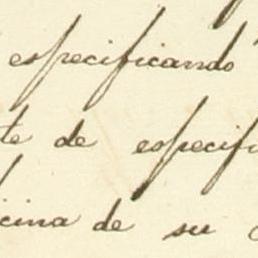 especificando
te de especifi
icina de su